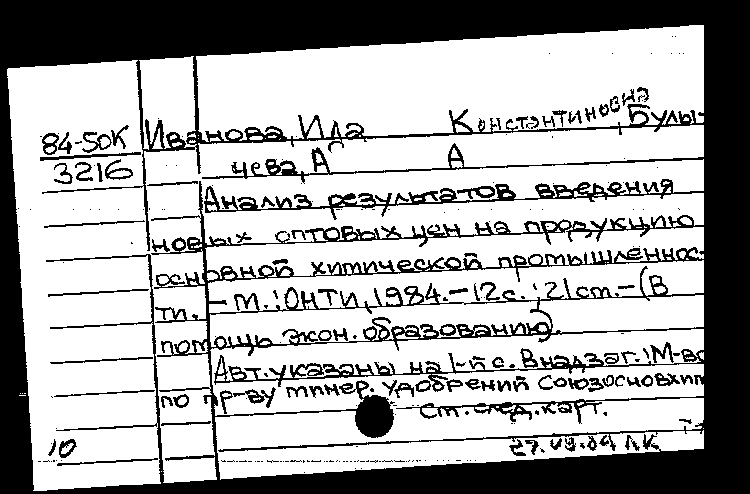 84-50К Иванова, Ида Константиновна, Булы-
3216 чева, А А
Анализ результатов введения
новых оптовых цен на продукцию
основной химической промышленнос-
ти. - М.: ОНТИ, 1984. - 12с.; 21 cm. - (В
помощь экон. образованию).
Авт. указаны на 1-й с. В надзаг.: М-во
по пр-ву минер. удобрений Союзосновхим
См. след. карт.
10